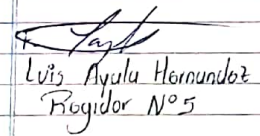 Luis Ayala Hernandez
Regidor N°5